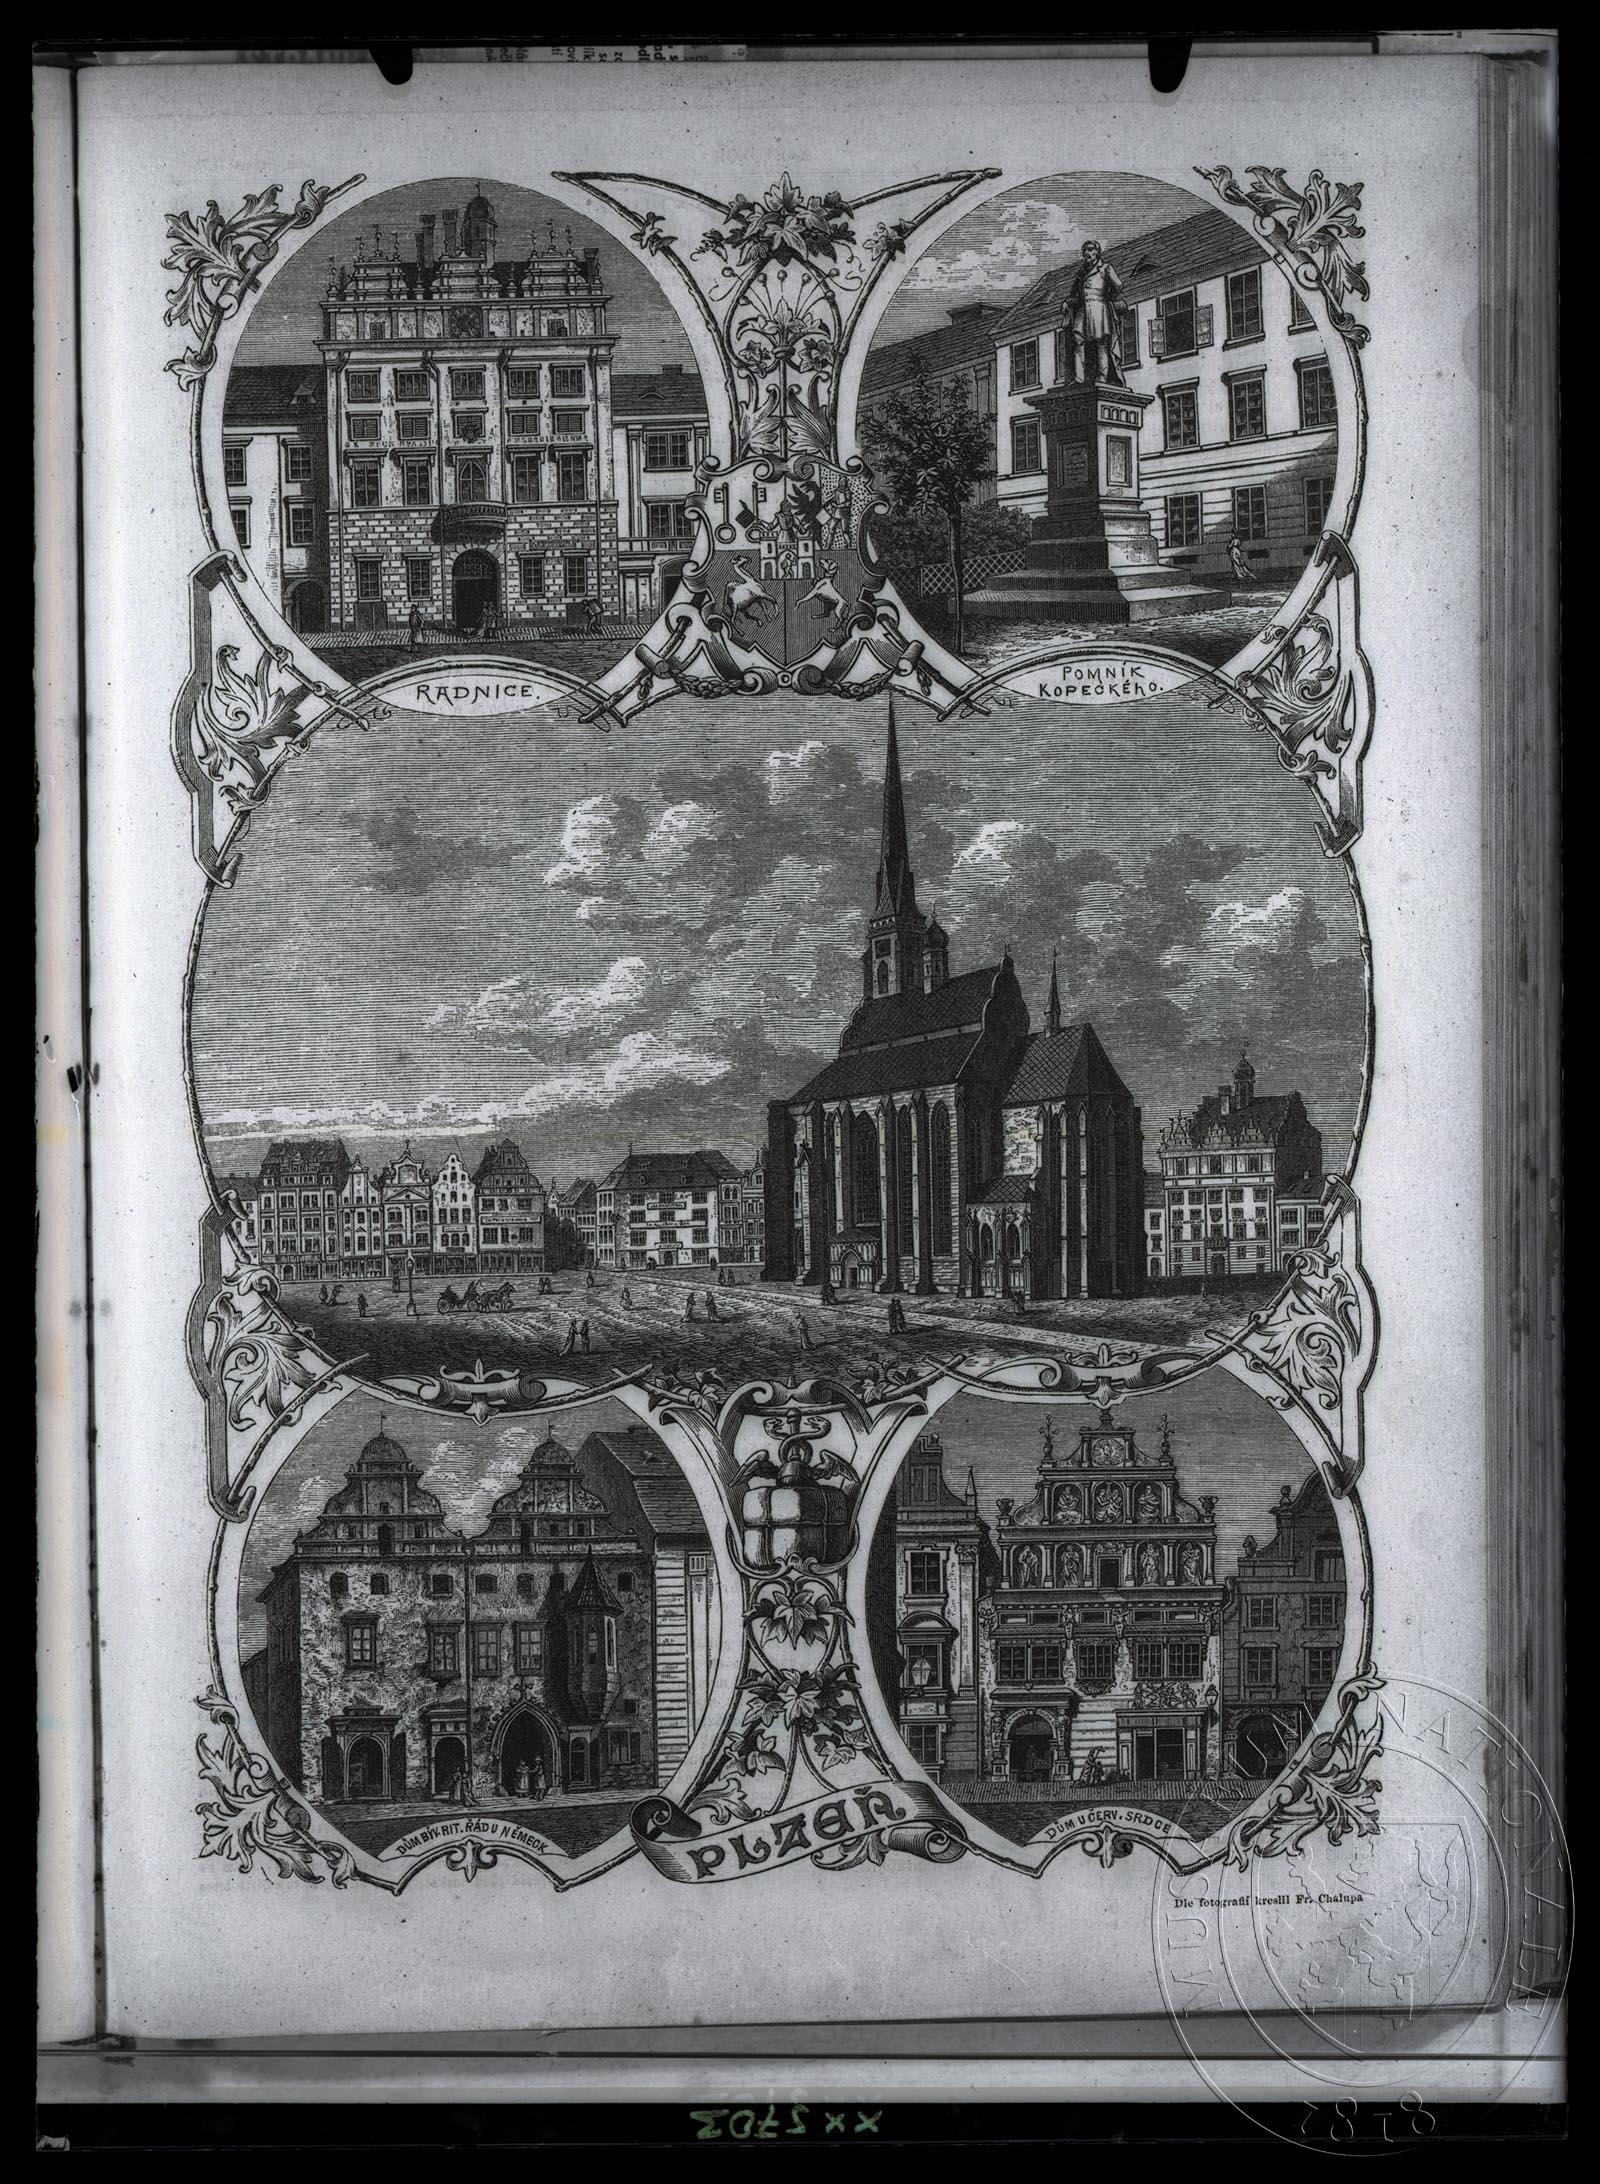 RADNICE.
POMNÍK
KOPECKÉHO.
DŮM BÝV. RIT. ŘÁDU NĚMECK
DŮM U ČERV. SRDCE
PLZEŇ
Dle fotografií kreslil Fr. Chalupa
MUSEUM NATIONALE
1818
XX 5703